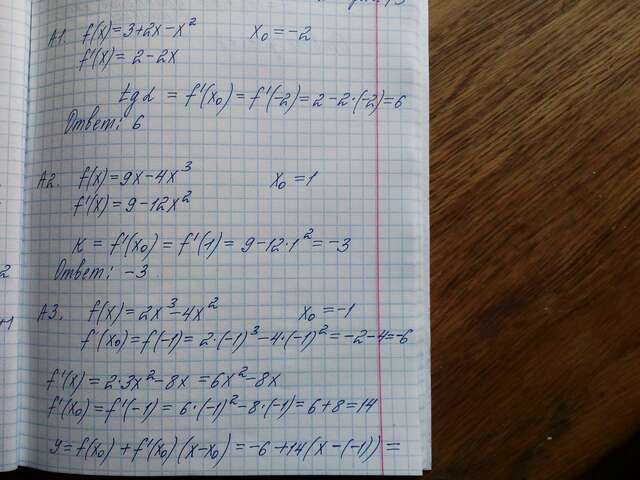 A1. f(x)=3+2x-x² x₀=-2
f'(x)=2-2x
tgα = f'(x₀)=f'(-2)=2-2·(-2)=6
Ответ: 6
A2. f(x)=9x-4x³ x₀=1
f'(x)=9-12x²
К = f'(x₀) = f'(1) = 9-12·1² = -3
Ответ: -3
A3. f(x)=2x³-4x² x₀=-1
f'(x₀)=f(-1) = 2·(-1)³-4·(-1)² = -2-4=-6
f'(x)=2·3x²-8x=6x²-8x
f'(x₀)=f'(-1) = 6·(-1)²-8·(-1)=6+8=14
y=f(x₀)+f'(x₀)(x-x₀)=-6+14(x-(-1))=